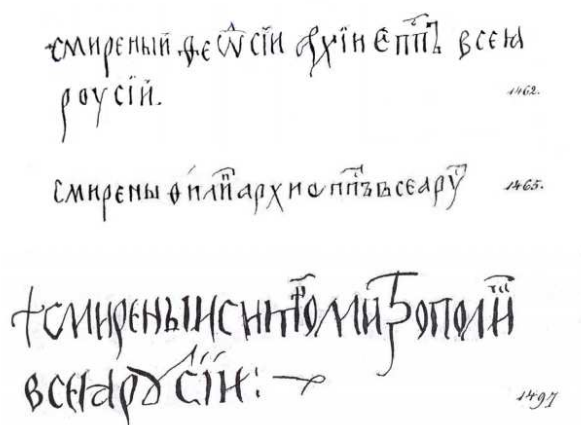 смиреный ѳеѡсїй архїиєппъ всеѧ
роусїй. 1462.
смирены филиⷫ архиеппъ всеарꙋⷭ 1465.
+смиреныисимоⷩ митрополиⷮ
всеарꙋсїи: 1497